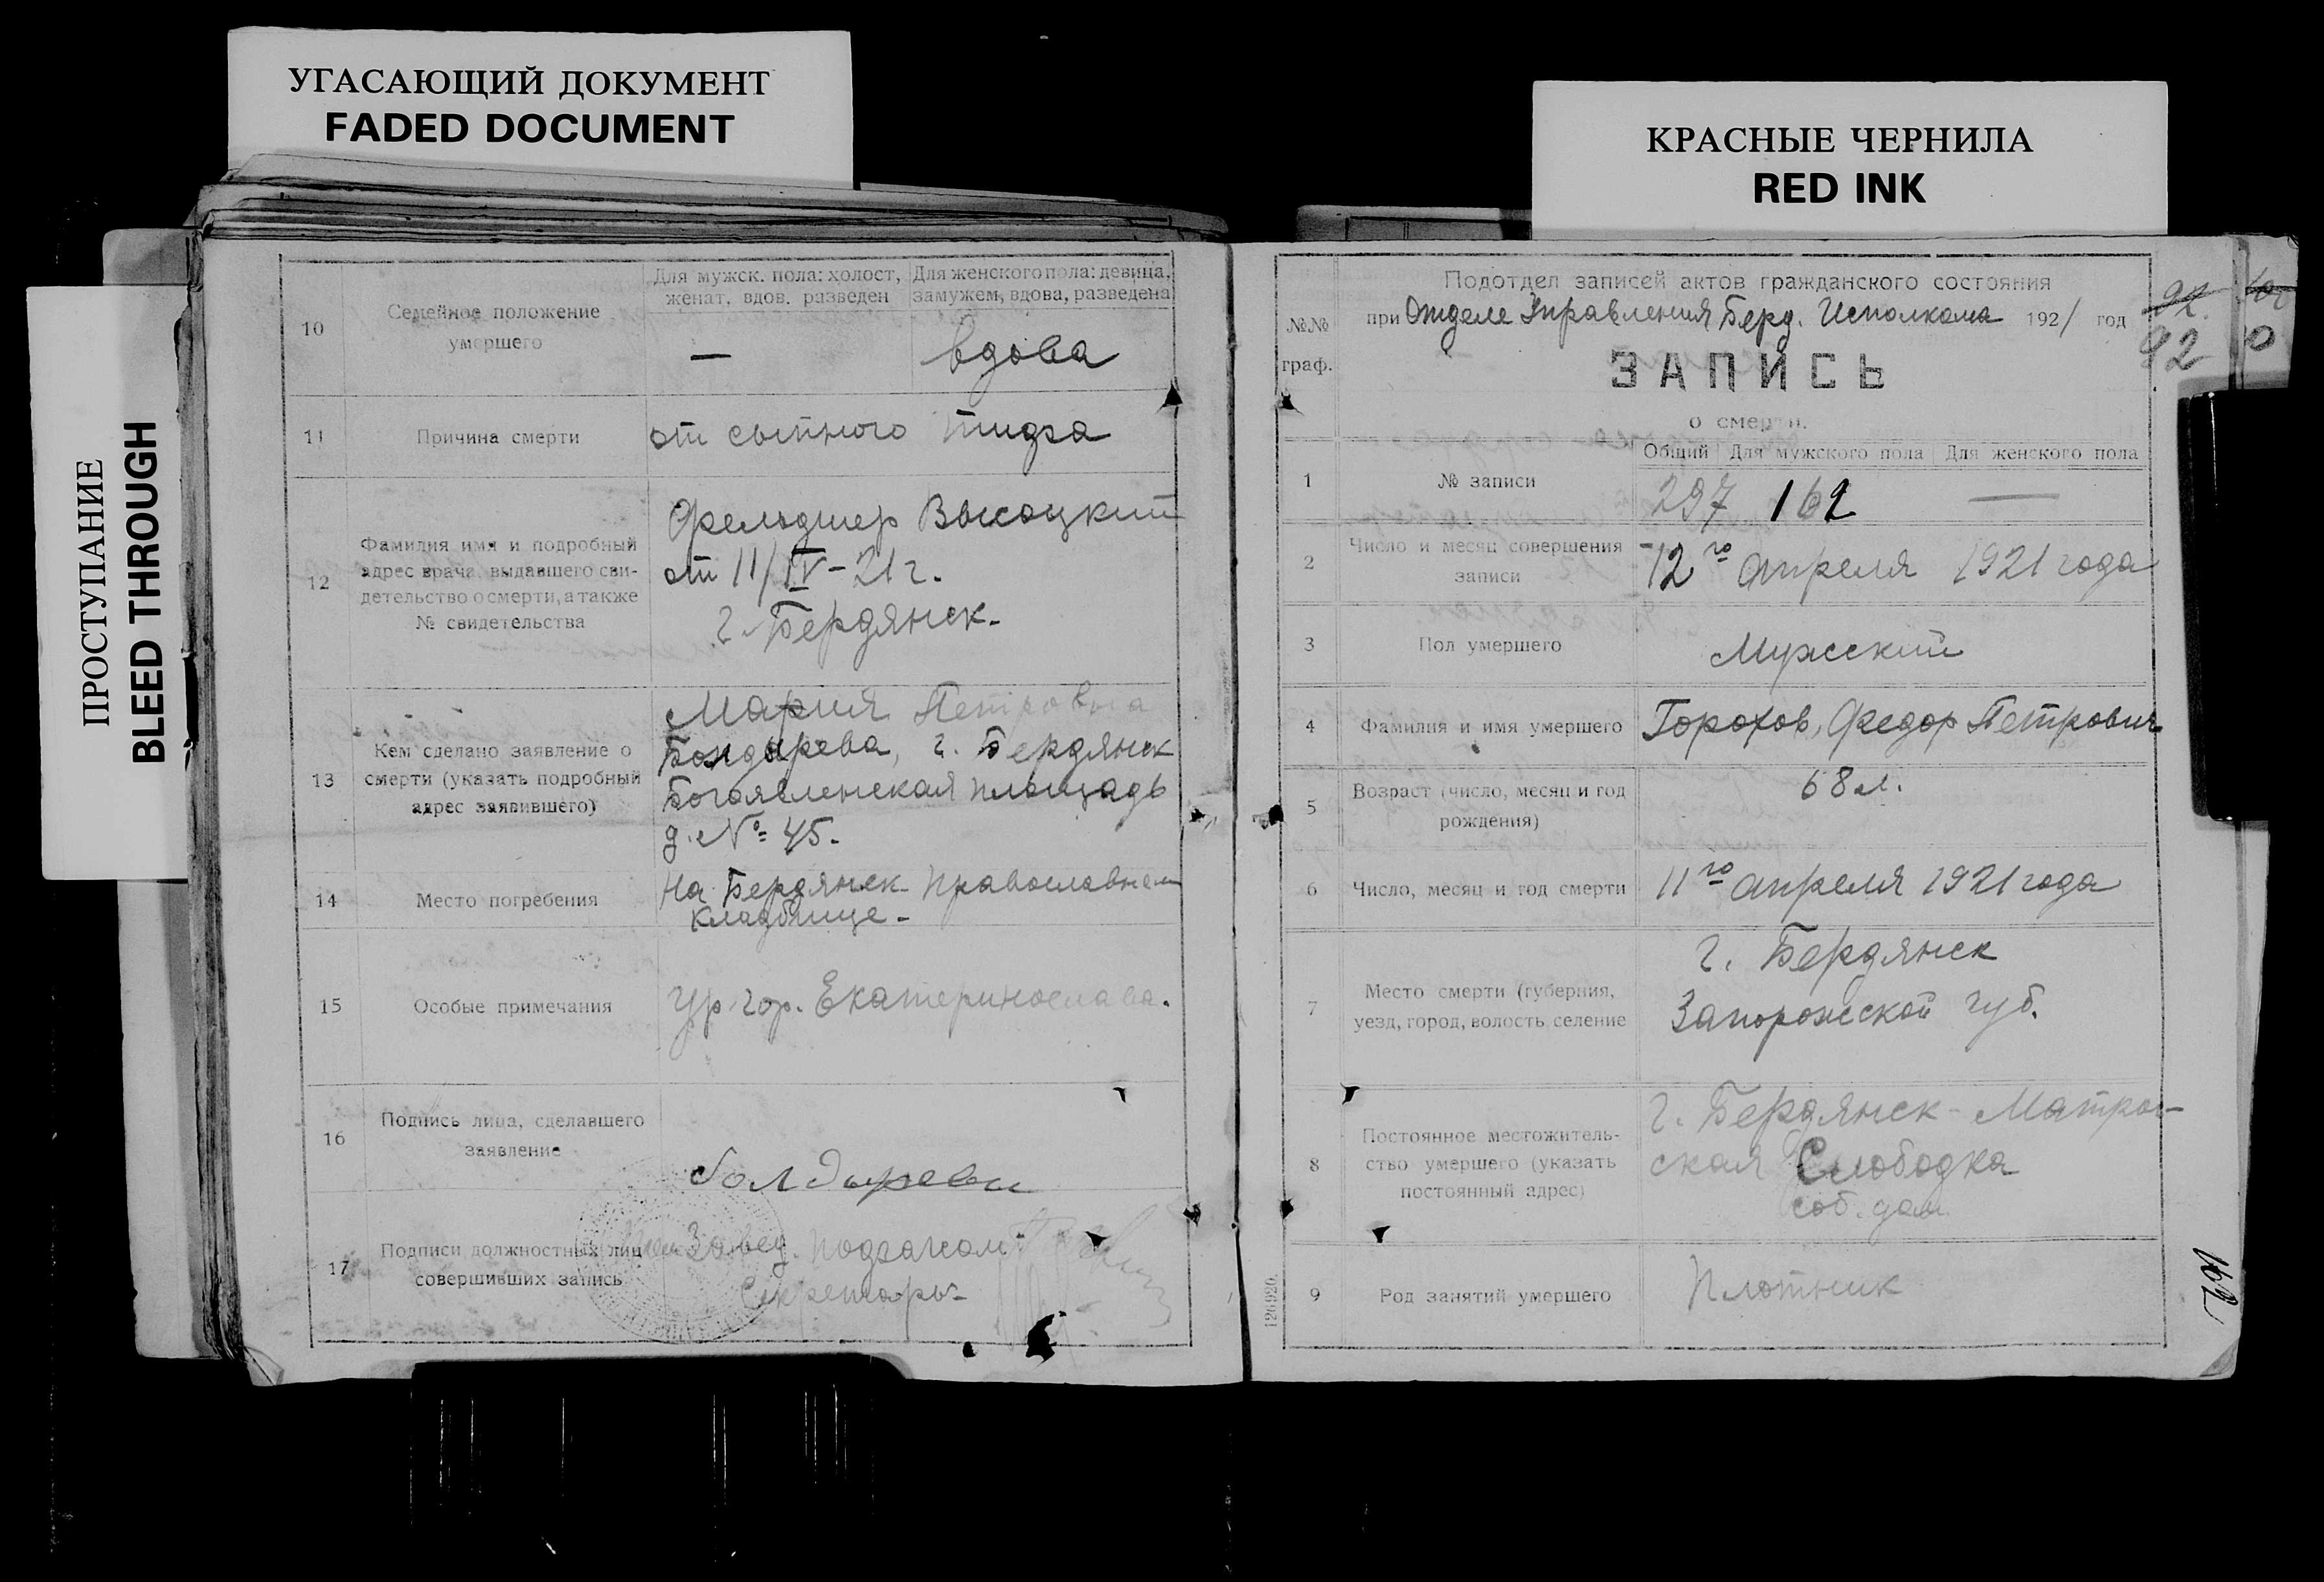 УГАСАЮЩИЙ ДОКУМЕНТ
FADED DOCUMENT
КРАСНЫЕ ЧЕРНИЛА
RED INK
ПРОСТУПАНИЕ
BLEED THROUGH
10
Семейное положение
умершего
Для мужск. пола: холост,
женат, вдов. разведен
Для женского пола: девица,
замужем, вдова, разведена
—
вдова
11
Причина смерти
от сыпного тифа
12
Фамилия имя и подробный
адрес врача, выдавшего сви-
детельство о смерти, а также
№ свидетельства
Фельдшер Высоцкий
от 11/IV-21 г.
г. Бердянск.
13
Кем сделано заявление о
смерти (указать подробный
адрес заявившего)
Мария Петровна
Бондырева, г. Бердянск
Богоявленская площадь
д. № 45.
14
Место погребения
На Бердянск. Православном
кладбище.
15
Особые примечания
Ур. гор. Екатеринослава.
16
Подпись лица, сделавшего
заявление
Болдырева
17
Подписи должностных лиц
совершивших запись
Завед. Подзагсом
Секретарь
№№
граф.
Подотдел записей актов гражданского состояния
при Отделе Управления Берд. Исполкома 1921 год
92
ЗАПИСЬ
о смерти.
1
№ записи
Общий Для мужского пола Для женского пола
297 162 —
2
Число и месяц совершения
записи
12го Апреля 1921 года
3
Пол умершего
Мужский
4
Фамилия и имя умершего
Горохов, Федор Петрович
5
Возраст (число, месяц и год
рождения)
68 л.
6
Число, месяц и год смерти
11го апреля 1921 года
7
Место смерти (губерния,
уезд, город, волость, селение
г. Бердянск
Запорожской губ.
8
Постоянное местожитель-
ство умершего (указать
постоянный адрес)
г. Бердянск Матрос-
ская Слободка
соб. дом
9
Род занятий умершего
Плотник
126920.
162